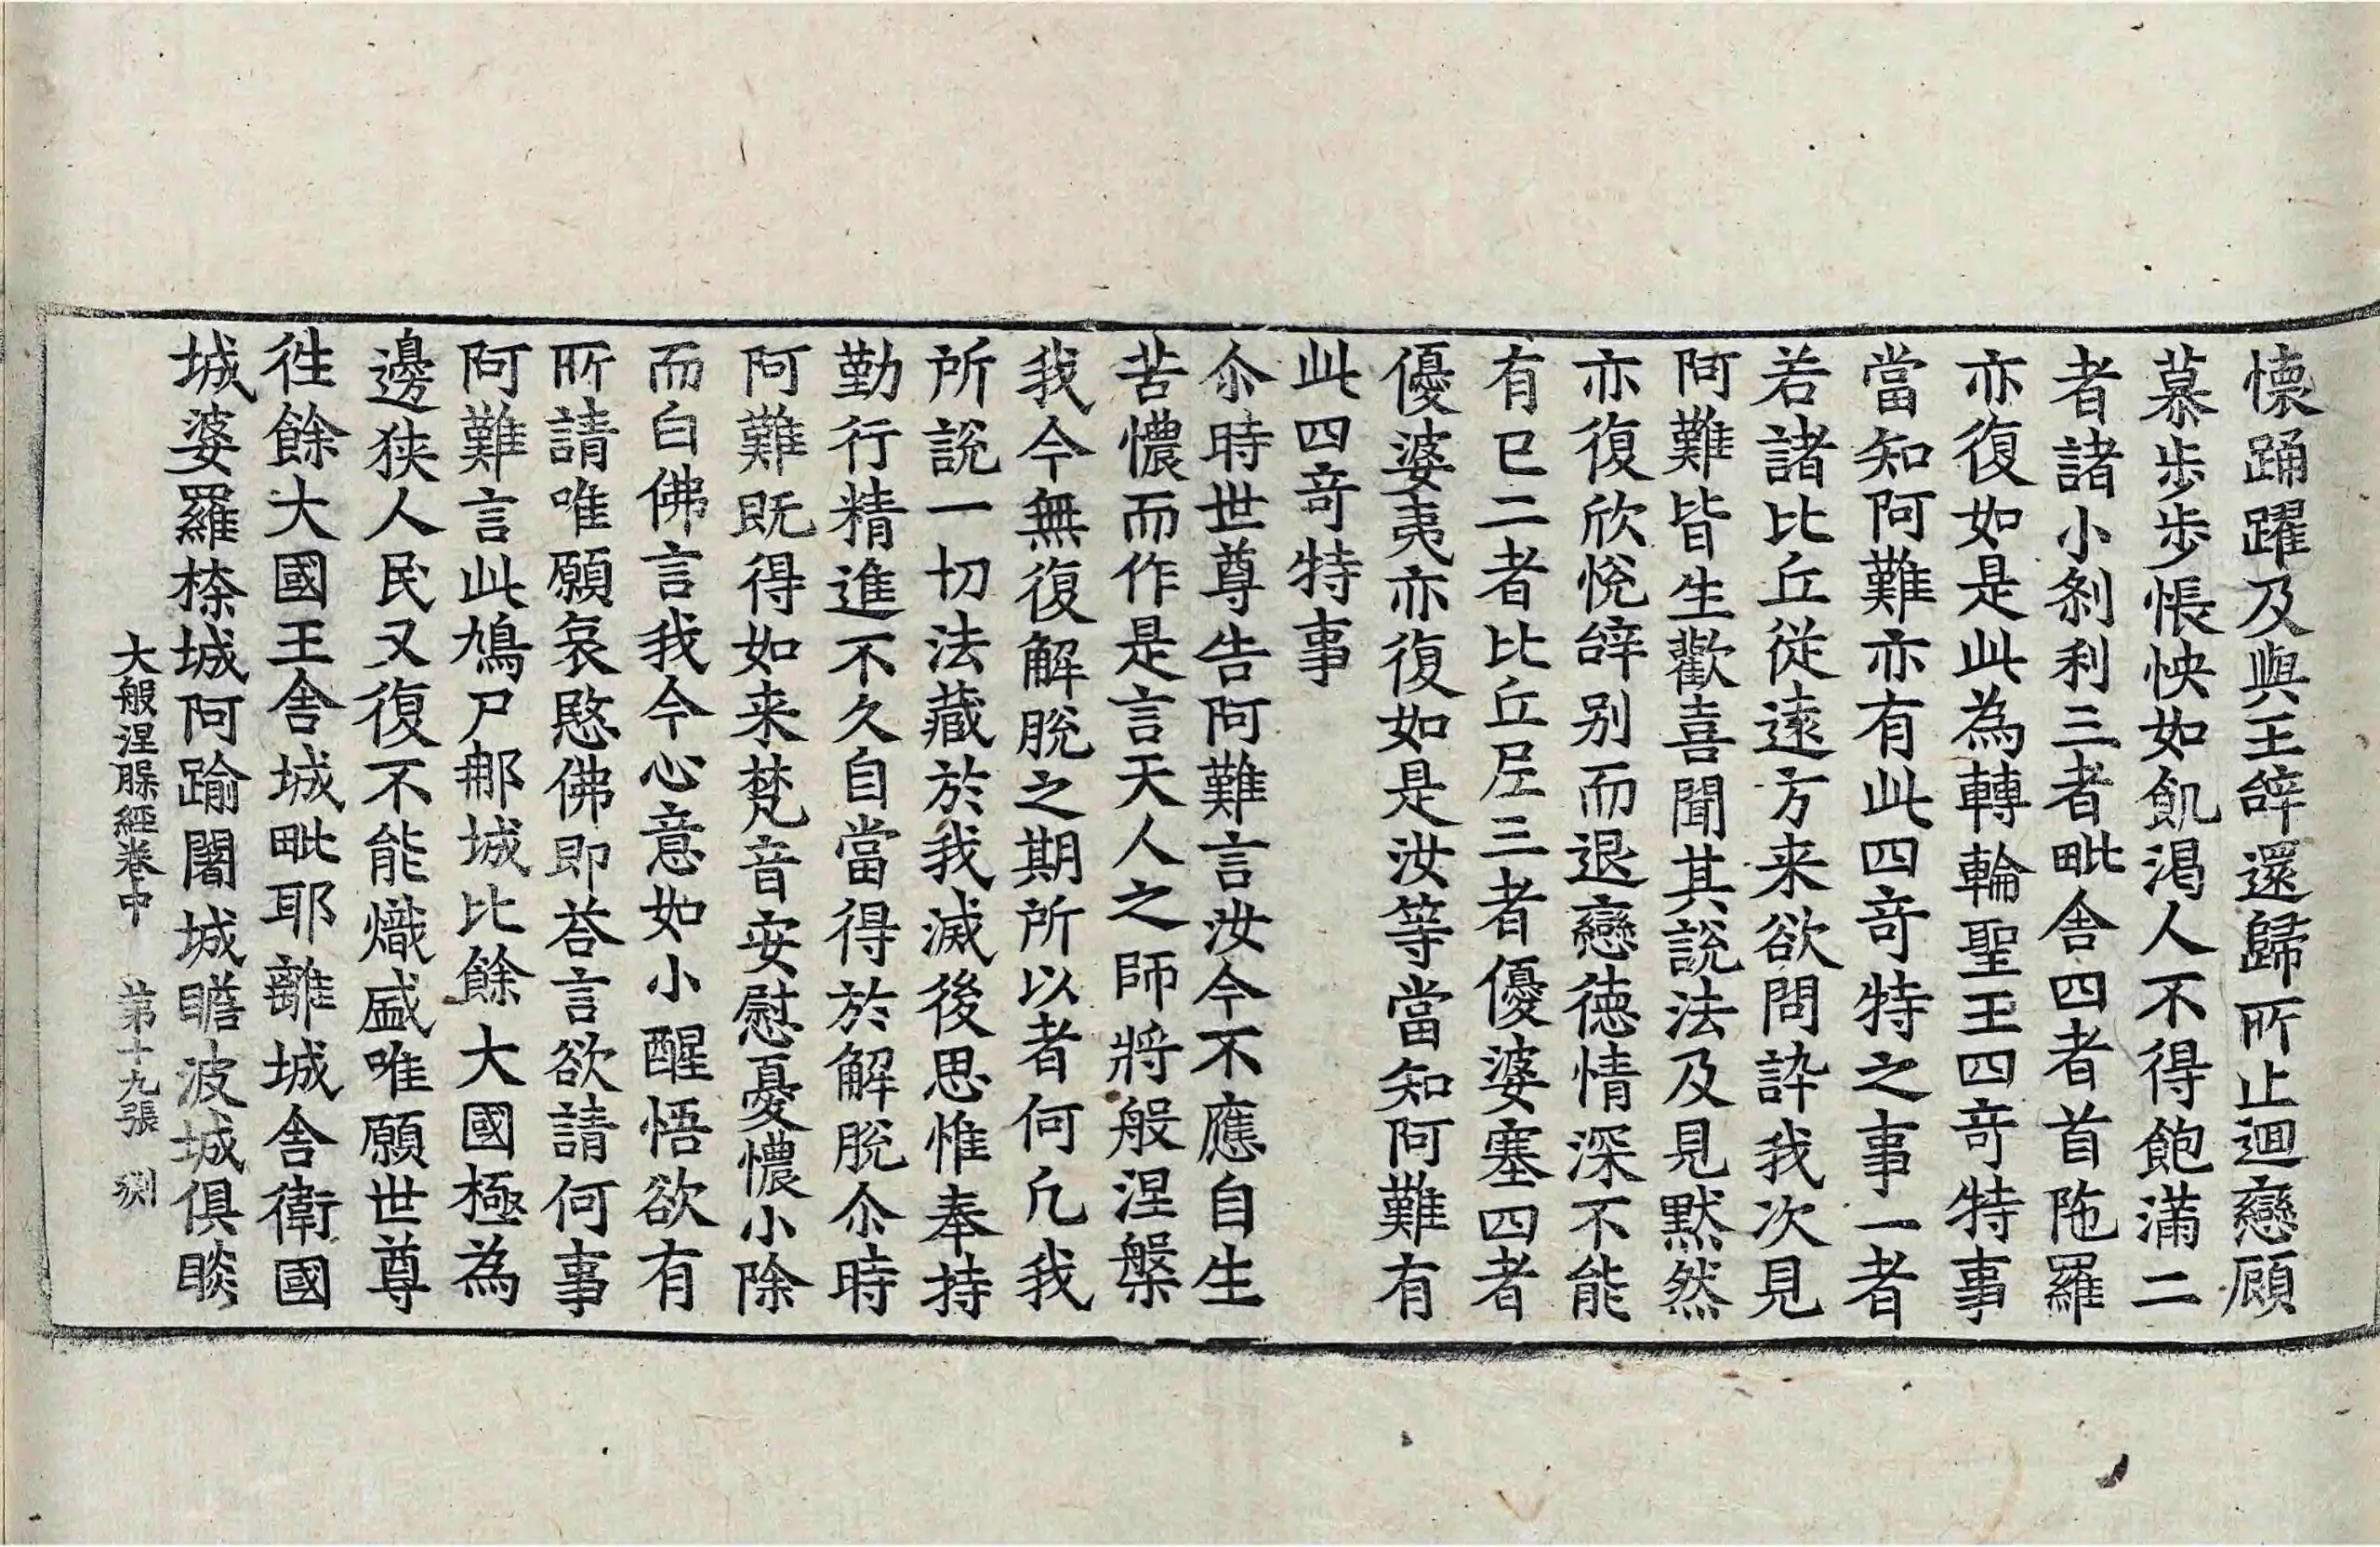 懷踊躍及與王辝還歸所止迴戀顧
慕步步悵怏如飢渴人不得飽滿二
者諸小刹利三者毗舍四者首陁羅
亦復如是此為轉輪聖王四竒特事
當知阿難亦有此四竒特之事一者
若諸比丘從遠方来欲問訊我次見
阿難皆生歡喜聞其說法及見默然
亦復欣悅辝别而退戀德情深不能
有已二者比丘尼三者優婆塞四者
優婆夷亦復如是汝等當知阿難有
此四竒特事
尒時世尊告阿難言汝今不應自生
苦懷而作是言天人之師將般涅槃
我今無復解脫之期所以者何凢我
所說一切法藏於我滅後思惟奉持
勤行精進不久自當得於解脫尒時
阿難既得如来梵音安慰憂懷小除
而白佛言我今心意如小醒悟欲有
所請唯願哀愍佛即荅言欲請何事
阿難言此鳩尸那城比餘大國極為
邊狹人民又復不能熾盛唯願世尊
徃餘大國王舍城毗耶離城舍衛國
城婆羅㮈城阿踰闍城瞻波城俱睒
大般涅槃經卷中 第十九張 渊